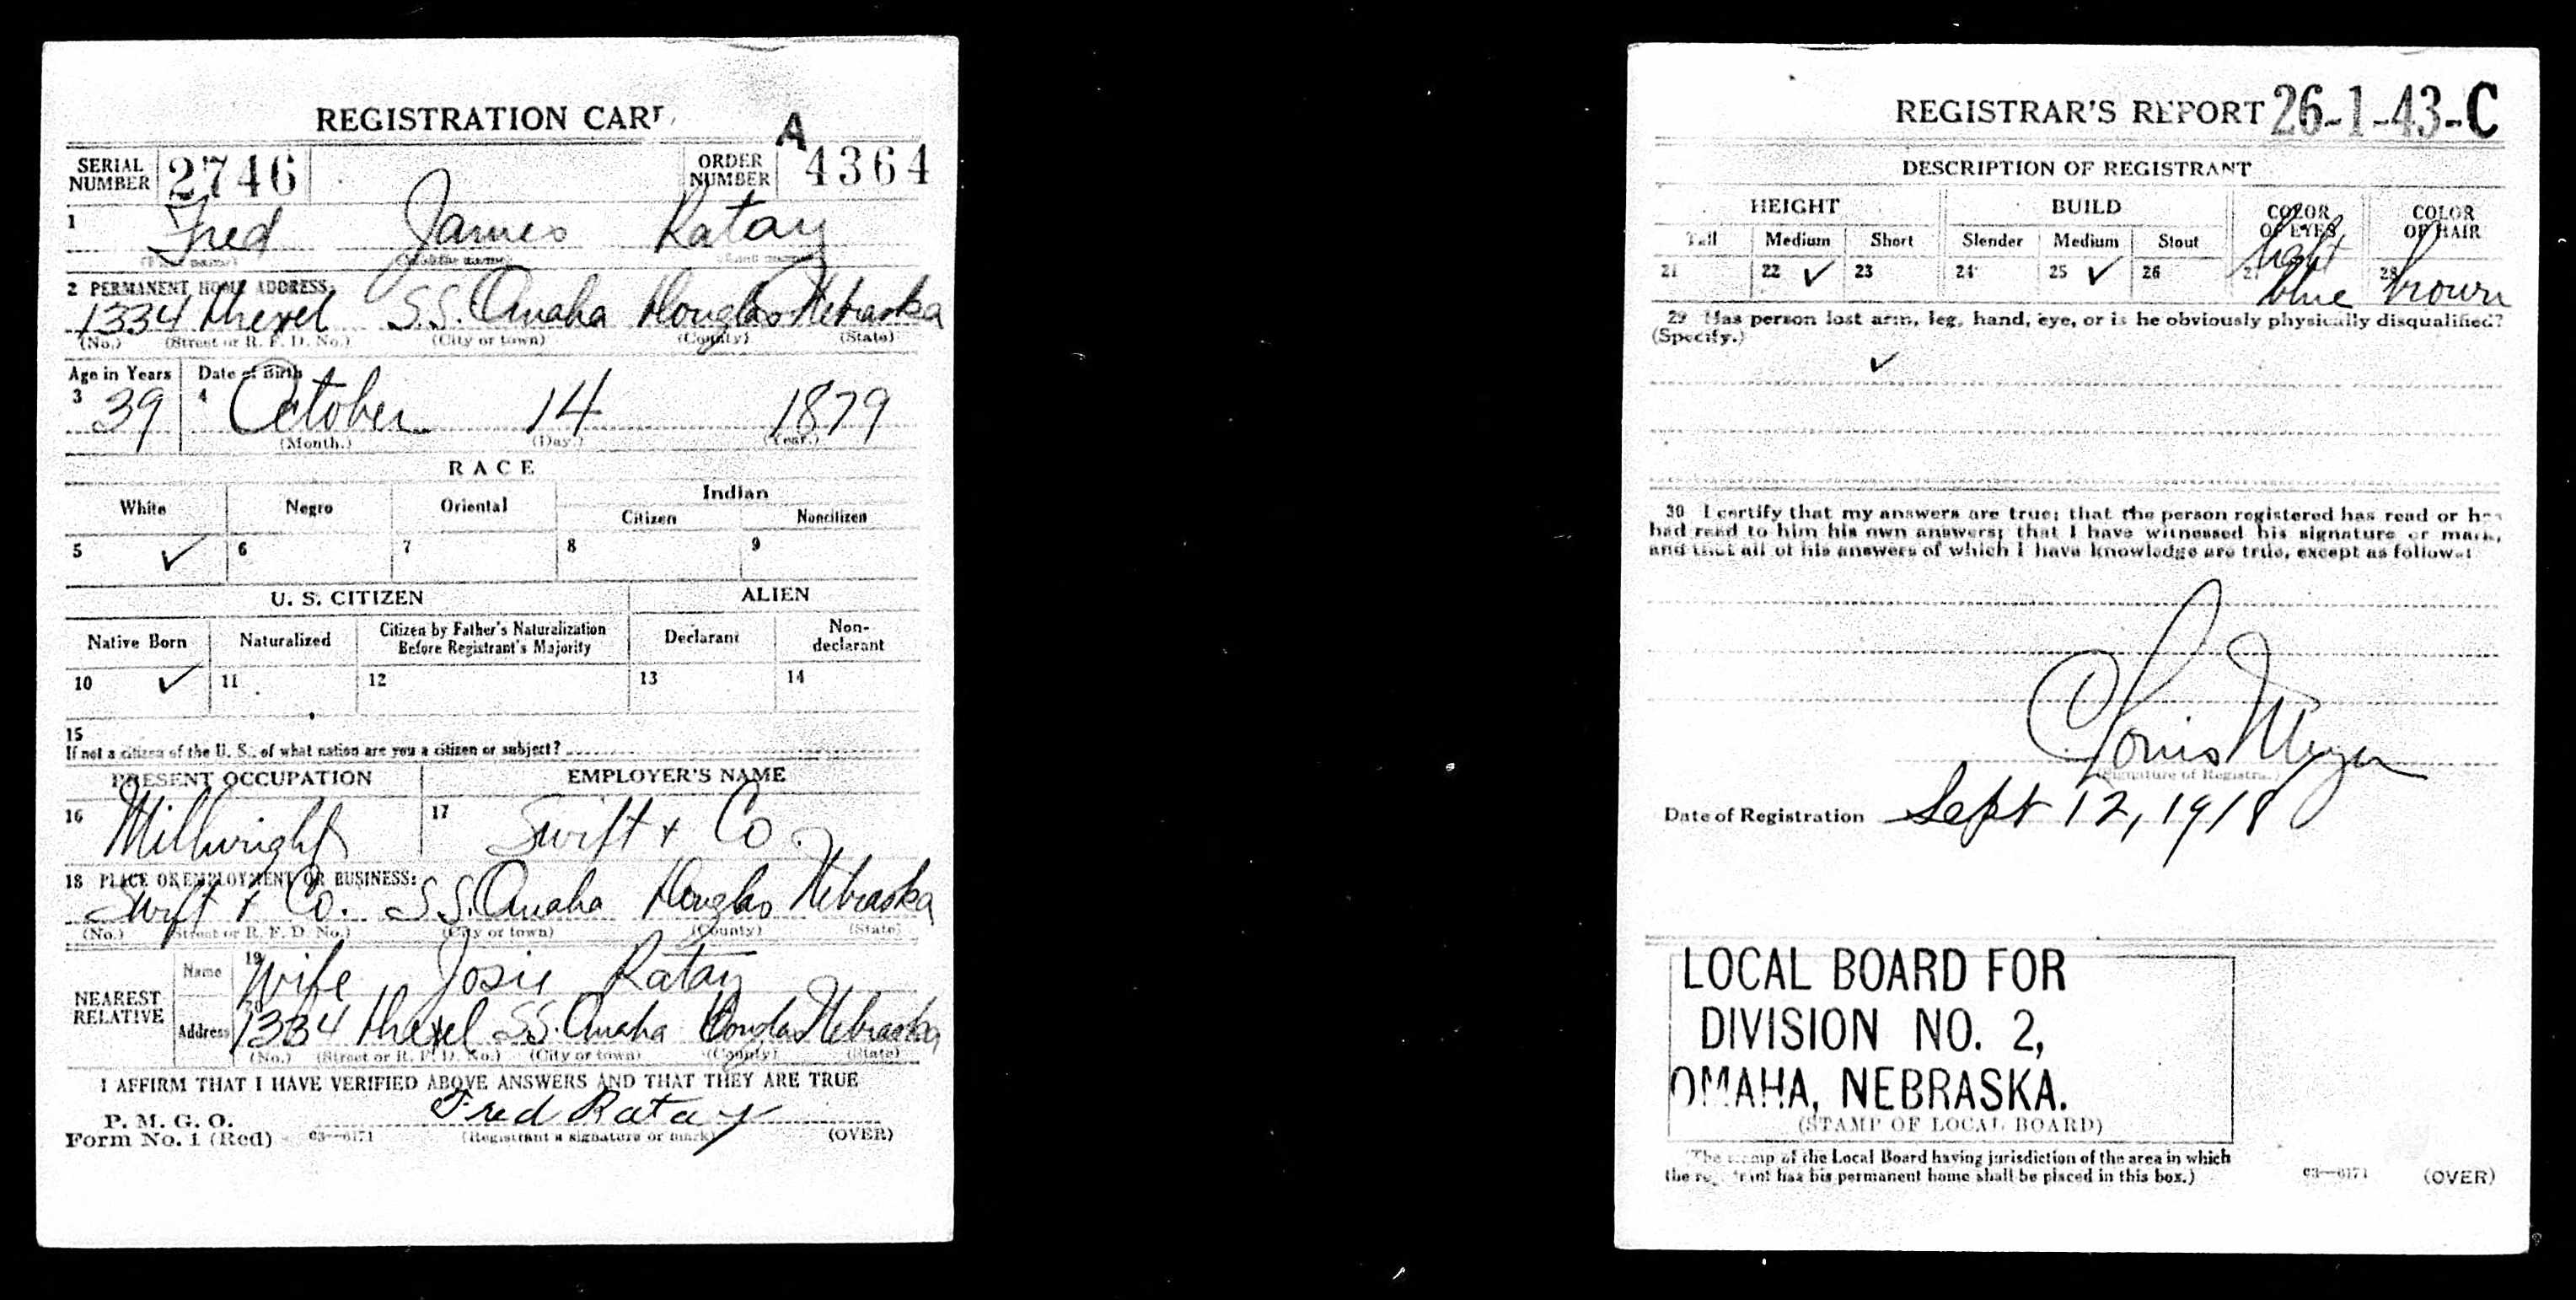 REGISTRATION CARD
A
SERIAL NUMBER 2746 ORDER NUMBER 4364
1 Fred James Ratay
(First name) (Middle name) (Last name)
2 PERMANENT HOME ADDRESS:
1334 Drexel S.S. Omaha Douglas Nebraska
(No.) (Street or R. F. D. No.) (City or town) (County) (State)
Age in Years Date of Birth
3 39 4 October 14 1879
(Month.) (Day.) (Year.)
RACE
White Negro Oriental Indian
Citizen Noncitizen
5 ✓ 6 7 8 9
U. S. CITIZEN ALIEN
Native Born Naturalized Citizen by Father's Naturalization Before Registrant's Majority Declarant Non-declarant
10 ✓ 11 12 13 14
15
If not a citizen of the U. S., of what nation are you a citizen or subject?
PRESENT OCCUPATION EMPLOYER'S NAME
16 Millwright 17 Swift + Co.
18 PLACE OF EMPLOYMENT OR BUSINESS:
Swift + Co. S.S. Omaha Douglas Nebraska
(No.) (Street or R. F. D. No.) (City or town) (County) (State)
NEAREST RELATIVE
Name 19 Wife Josie Ratay
Address 20 1334 Drexel S.S. Omaha Douglas Nebraska
(No.) (Street or R. F. D. No.) (City or town) (County) (State)
I AFFIRM THAT I HAVE VERIFIED ABOVE ANSWERS AND THAT THEY ARE TRUE
P. M. G. O.
Form No. 1 (Red) 03—6171 Fred Ratay
(Registrant's signature or mark) (OVER)
REGISTRAR'S REPORT 26-1-43-C
DESCRIPTION OF REGISTRANT
HEIGHT BUILD COLOR OF EYES COLOR OF HAIR
Tall Medium Short Slender Medium Stout
21 22 ✓ 23 24 25 ✓ 26 27 light blue 28 brown
29 Has person lost arm, leg, hand, eye, or is he obviously physically disqualified?
(Specify.)
✓
30 I certify that my answers are true; that the person registered has read or has
had read to him his own answers; that I have witnessed his signature or mark,
and that all of his answers of which I have knowledge are true, except as follows:
Louis Meyer
(Signature of Registrar)
Date of Registration Sept 12, 1918
LOCAL BOARD FOR
DIVISION NO. 2,
OMAHA, NEBRASKA.
(STAMP OF LOCAL BOARD)
(The stamp of the Local Board having jurisdiction of the area in which
the registrant has his permanent home shall be placed in this box.)
03—6171 (OVER)